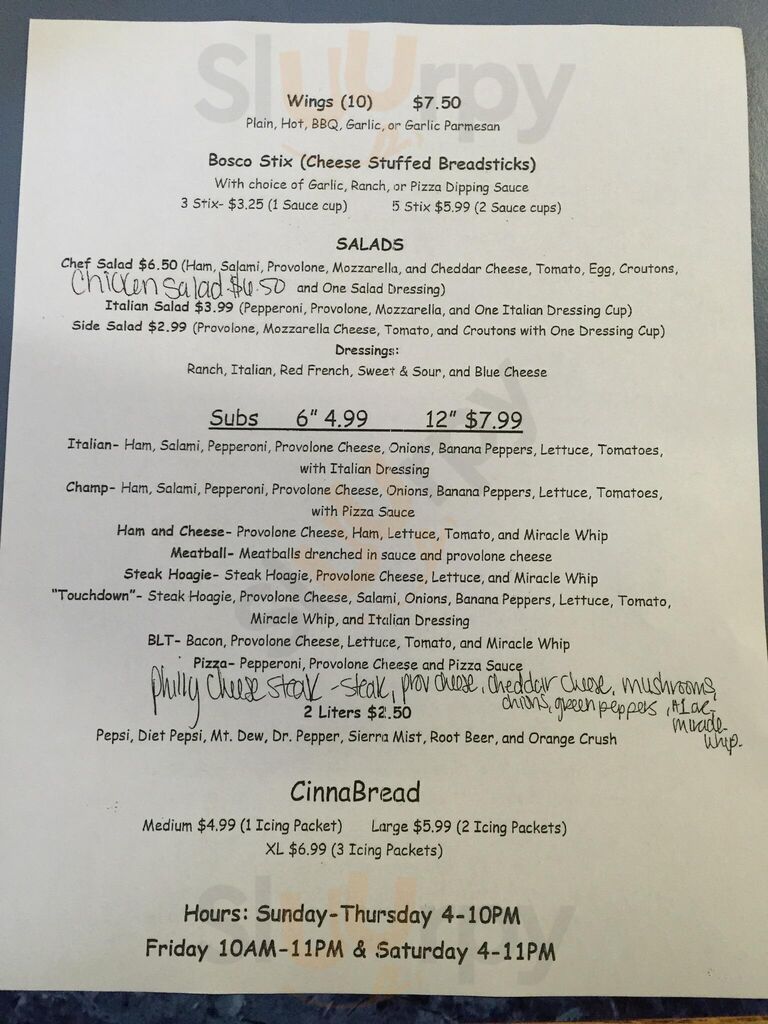 Sluurpy
Wings (10) $7.50
Plain, Hot, BBQ, Garlic, or Garlic Parmesan
Bosco Stix (Cheese Stuffed Breadsticks)
With choice of Garlic, Ranch, or Pizza Dipping Sauce
3 Stix- $3.25 (1 Sauce cup) 5 Stix $5.99 (2 Sauce cups)
SALADS
Chef Salad $6.50 (Ham, Salami, Provolone, Mozzarella, and Cheddar Cheese, Tomato, Egg, Croutons,
Chicken Salad $6.50 and One Salad Dressing)
Italian Salad $3.99 (Pepperoni, Provolone, Mozzarella, and One Italian Dressing Cup)
Side Salad $2.99 (Provolone, Mozzarella Cheese, Tomato, and Croutons with One Dressing Cup)
Dressings:
Ranch, Italian, Red French, Sweet & Sour, and Blue Cheese
Subs 6" 4.99 12" $7.99
Italian- Ham, Salami, Pepperoni, Provolone Cheese, Onions, Banana Peppers, Lettuce, Tomatoes,
with Italian Dressing
Champ- Ham, Salami, Pepperoni, Provolone Cheese, Onions, Banana Peppers, Lettuce, Tomatoes,
with Pizza Sauce
Ham and Cheese- Provolone Cheese, Ham, Lettuce, Tomato, and Miracle Whip
Meatball- Meatballs drenched in sauce and provolone cheese
Steak Hoagie- Steak Hoagie, Provolone Cheese, Lettuce, and Miracle Whip
"Touchdown"- Steak Hoagie, Provolone Cheese, Salami, Onions, Banana Peppers, Lettuce, Tomato,
Miracle Whip, and Italian Dressing
BLT- Bacon, Provolone Cheese, Lettuce, Tomato, and Miracle Whip
Pizza- Pepperoni, Provolone Cheese and Pizza Sauce
Philly Cheese Steak - Steak, prov cheese, cheddar cheese, mushrooms,
onions, green peppers, A1 or
miracle
whip.
2 Liters $2.50
Pepsi, Diet Pepsi, Mt. Dew, Dr. Pepper, Sierra Mist, Root Beer, and Orange Crush
CinnaBread
Medium $4.99 (1 Icing Packet) Large $5.99 (2 Icing Packets)
XL $6.99 (3 Icing Packets)
Hours: Sunday-Thursday 4-10PM
Friday 10AM-11PM & Saturday 4-11PM
Sluurpy